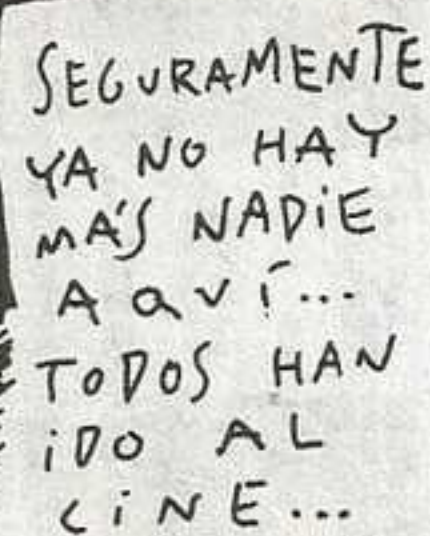 SEGURAMENTE
YA NO HAY
MÁS NADiE
AQUÍ...
TODOS HAN
iDO AL
CiNE...